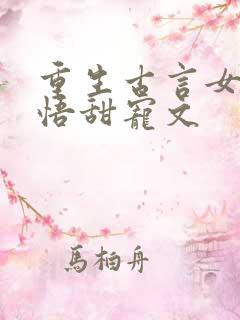 重生古言女
悟甜寵文
馬柏舟